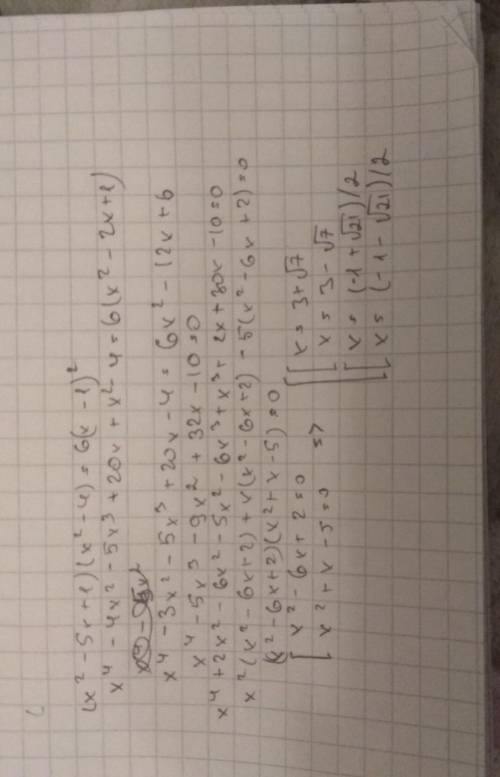 (x² - 5x + 1)(x² - 4) = 6(x - 1)²
x⁴ - 4x² - 5x³ + 20x + x² - 4 = 6(x² - 2x + 1)
x⁴ - 3x² - 5x³ + 20x - 4 = 6x² - 12x + 6
x⁴ - 5x³ - 9x² + 32x - 10 = 0
x⁴ + 2x² - 6x² - 5x² - 6x³ + x³ + 2x + 30x - 10 = 0
x²(x² - 6x + 2) + x(x² - 6x + 2) - 5(x² - 6x + 2) = 0
(x² - 6x + 2)(x² + x - 5) = 0
[ x² - 6x + 2 = 0
x² + x - 5 = 0 =>
[ [ x = 3 + √7
x = 3 - √7
[ x = (-1 + √21)/2
x = (-1 - √21)/2